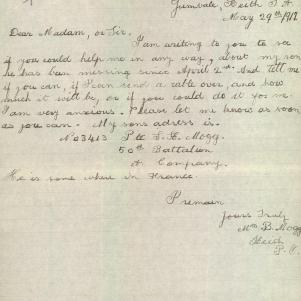 Keith S. A.
May 29th 1917
Dear Madam, or Sir.
I am writing to you to see
if you could help me in any way, about my son
he has been missing since April 2nd. And tell me
if you can, if I can send a cable over, and how
much it will be, or if you could do it for me.
I am very anxious. Please let me know as soon
as you can. My sons adress is.
No 3413 Pte F. E. Mogg.
50th Battalion
A Company.
He is some where in France.
I remain
Yours Truly
Mrs B. Mogg
Keith